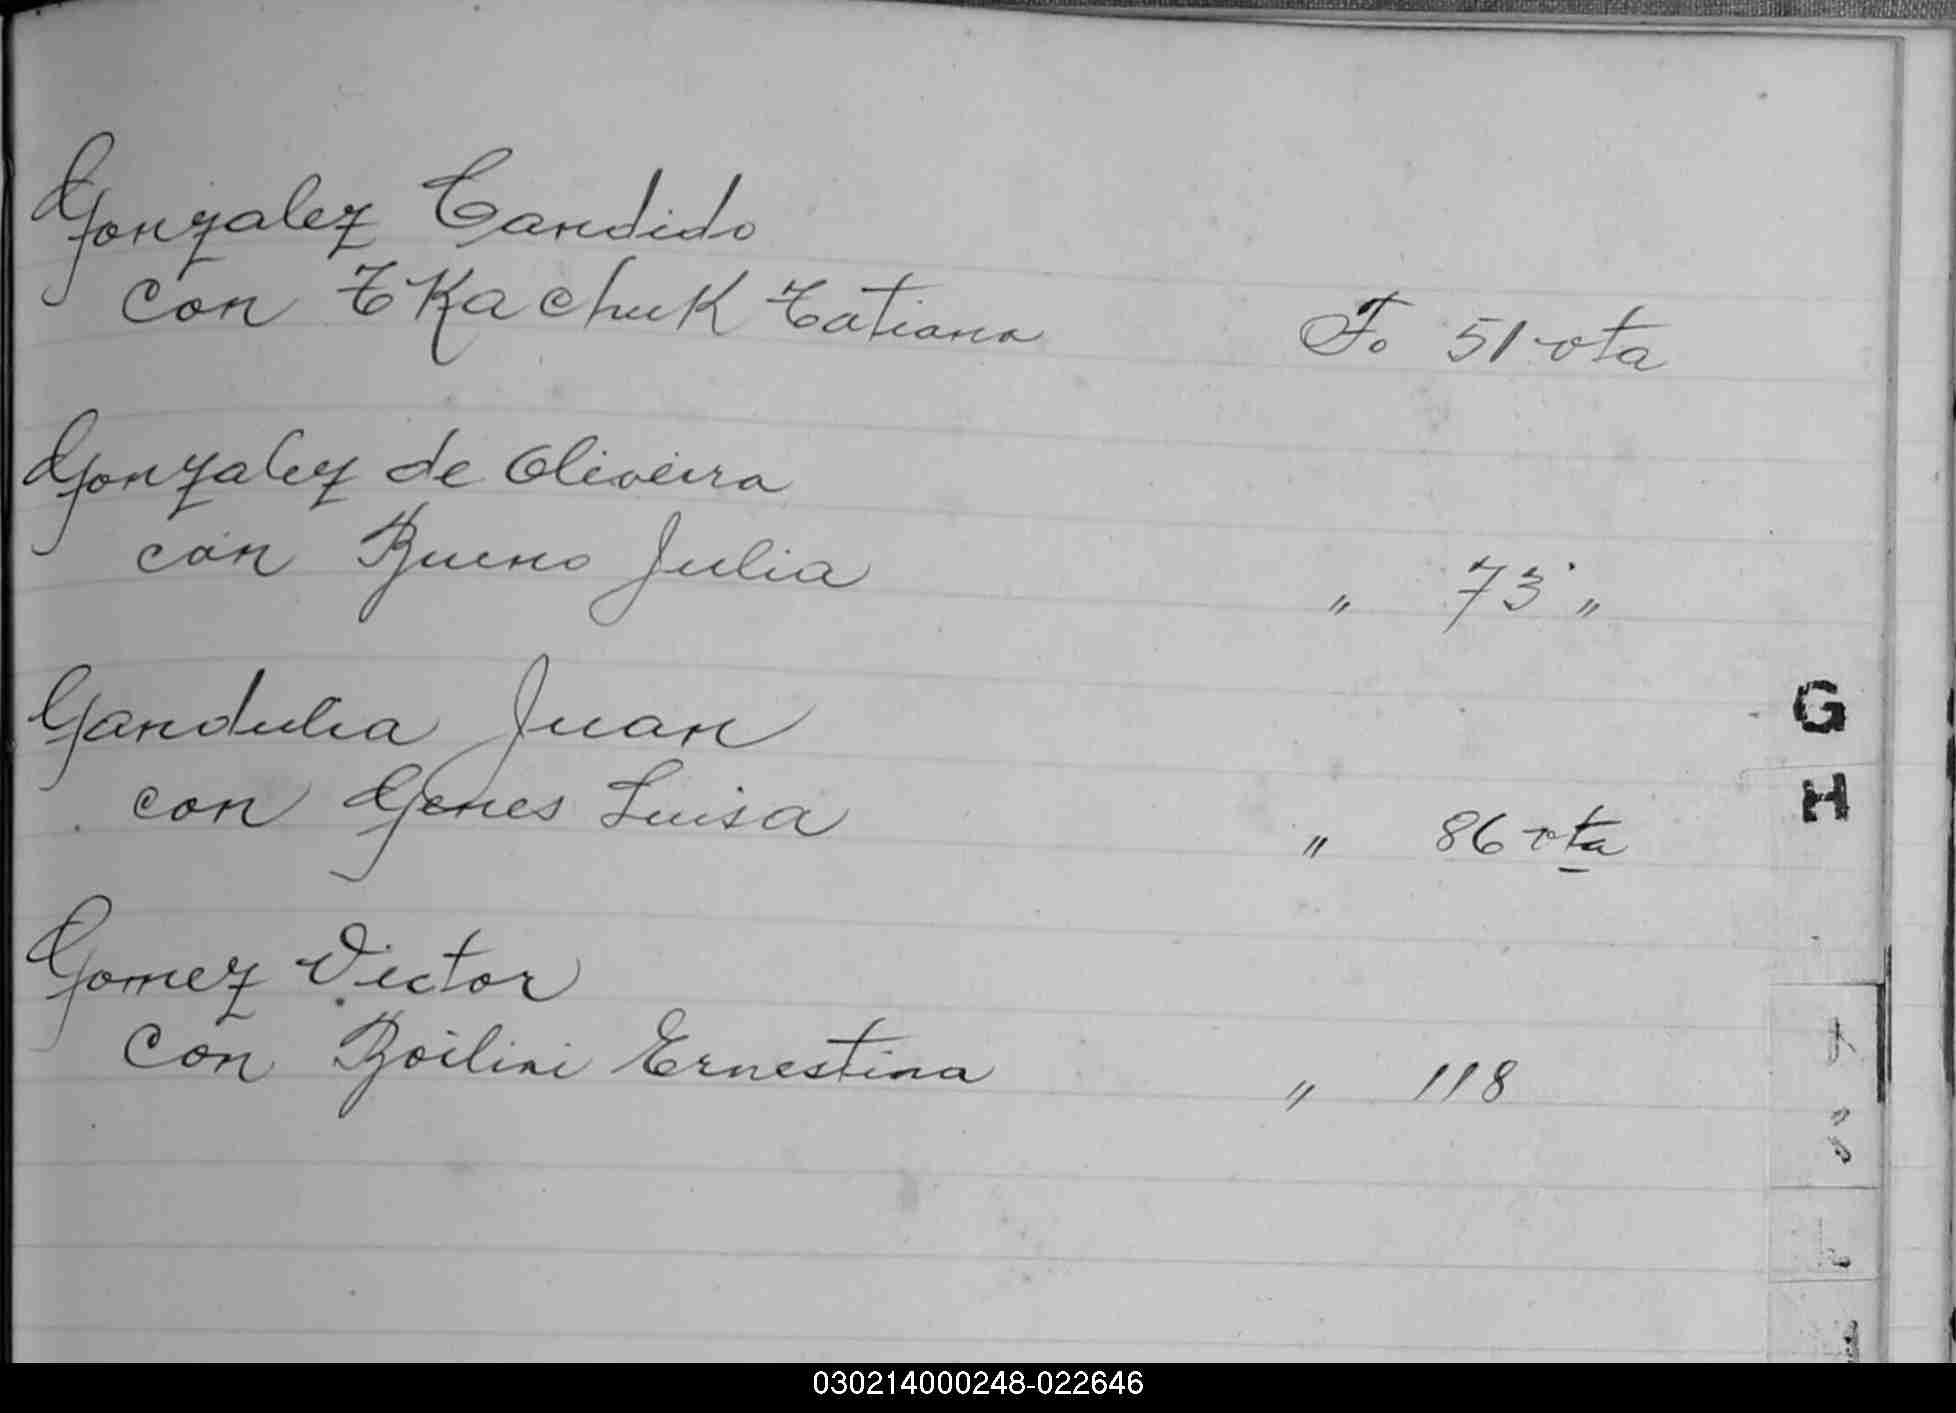 Gonzalez Candido
con TKachuK Tatiana Fo 51 vta
Gonzalez de Oliveira
con Bueno Julia " 73 "
Gandulia Juan
con Genes Luisa " 86 vta
G
H
Gomez Victor
con Boilini Ernestina " 118
030214000248-022646